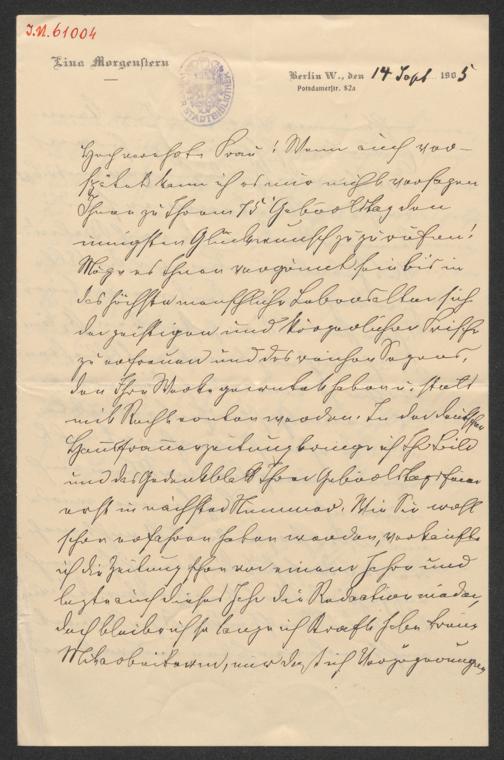 J.N. 61004
Lina Morgenstern
STADTBIBLIOTHEK
Berlin W., den 14 Sept 1905
Potsdamerstr. 82a
Hochverehrte Frau! Wenn auch ver-
spätet kann ich es mir nicht versagen
Ihnen zu Ihrem 75 Geburtstag den
innigsten Glückwunsch zuzurufen!
Möge es Ihnen vergönnt sein bis in
das höchste menschliche Lebensalter sich
der geistigen und körperlichen Frische
zu erfreuen und des reichen Segens,
den Ihre Werke gezeitigt haben u. stets
mit Recht werden. In der deutschen
Hausfrauenzeitung bringe ich Ihr Bild
und das Gedenkblatt Ihrer Geburtstagsfeier
erst in nächster Nummer. Wie Sie wohl
schon erfahren haben werden, verkaufte
ich die Zeitung schon vor einem Jahre und
legte auch dieses Jahr die Redaction nieder,
doch bleibe ich so lange ich Kräfte habe treue
Mitarbeiterin, nur daß ich Verzögerungen